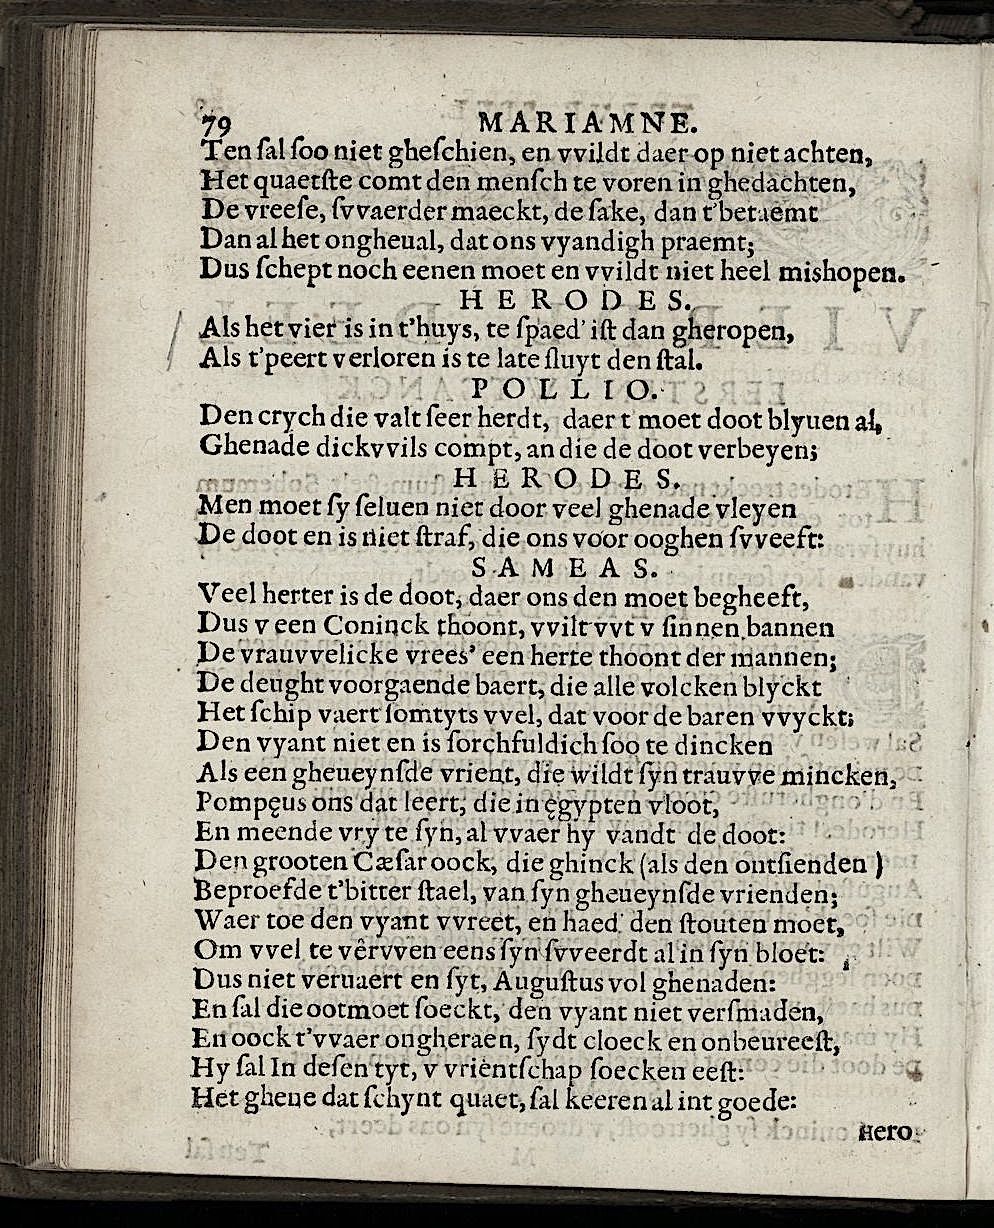 79 MARIAMNE.
Ten ſal ſoo niet gheſchien, en vvildt daer op niet achten,
Het quaetſte comt den menſch te voren in ghedachten,
De vreeſe, ſvvaerder maeckt, de ſake, dan t'betaemt
Dan al het ongheual, dat ons vyandigh praemt;
Dus ſchept noch eenen moet en vvildt niet heel mishopen.
HERODES.
Als het vier is in t'huys, te ſpaed' iſt dan gheropen,
Als t'peert verloren is te late ſluyt den ſtal.
POLLIO.
Den crych die valt ſeer herdt, daer t moet doot blyuen al,
Ghenade dickvvils compt, an die de doot verbeyen;
HERODES.
Men moet ſy ſeluen niet door veel ghenade vleyen
De doot en is niet ſtraf, die ons voor ooghen ſvveeft:
SAMEAS.
Veel herter is de doot, daer ons den moet begheeft,
Dus v een Coninck thoont, vvilt vvt v ſinnen bannen
De vrauvvelicke vrees' een herte thoont der mannen;
De deught voorgaende baert, die alle volcken blyckt
Het ſchip vaert ſomtyts vvel, dat voor de baren vvyckt;
Den vyant niet en is ſorchfuldich ſoo te dincken
Als een gheueynſde vrient, die wildt ſyn trauvve mincken,
Pompęus ons dat leert, die in ęgypten vloot,
En meende vry te ſyn, al vvaer hy vandt de doot:
Den grooten Cæſar oock, die ghinck (als den ontſienden )
Beproefde t'bitter ſtael, van ſyn gheueynſde vrienden;
Waer toe den vyant vvreet, en haed den ſtouten moet,
Om vvel te vêrvven eens ſyn ſvveerdt al in ſyn bloet:
Dus niet veruaert en ſyt, Auguſtus vol ghenaden:
En ſal die ootmoet ſoeckt, den vyant niet verſmaden,
En oock t'vvaer ongheraen, ſydt cloeck en onbeureeſt,
Hy ſal In deſen tyt, v vrientſchap ſoecken eeſt:
Het ghene dat ſchynt quaet, ſal keeren al int goede:
Hero